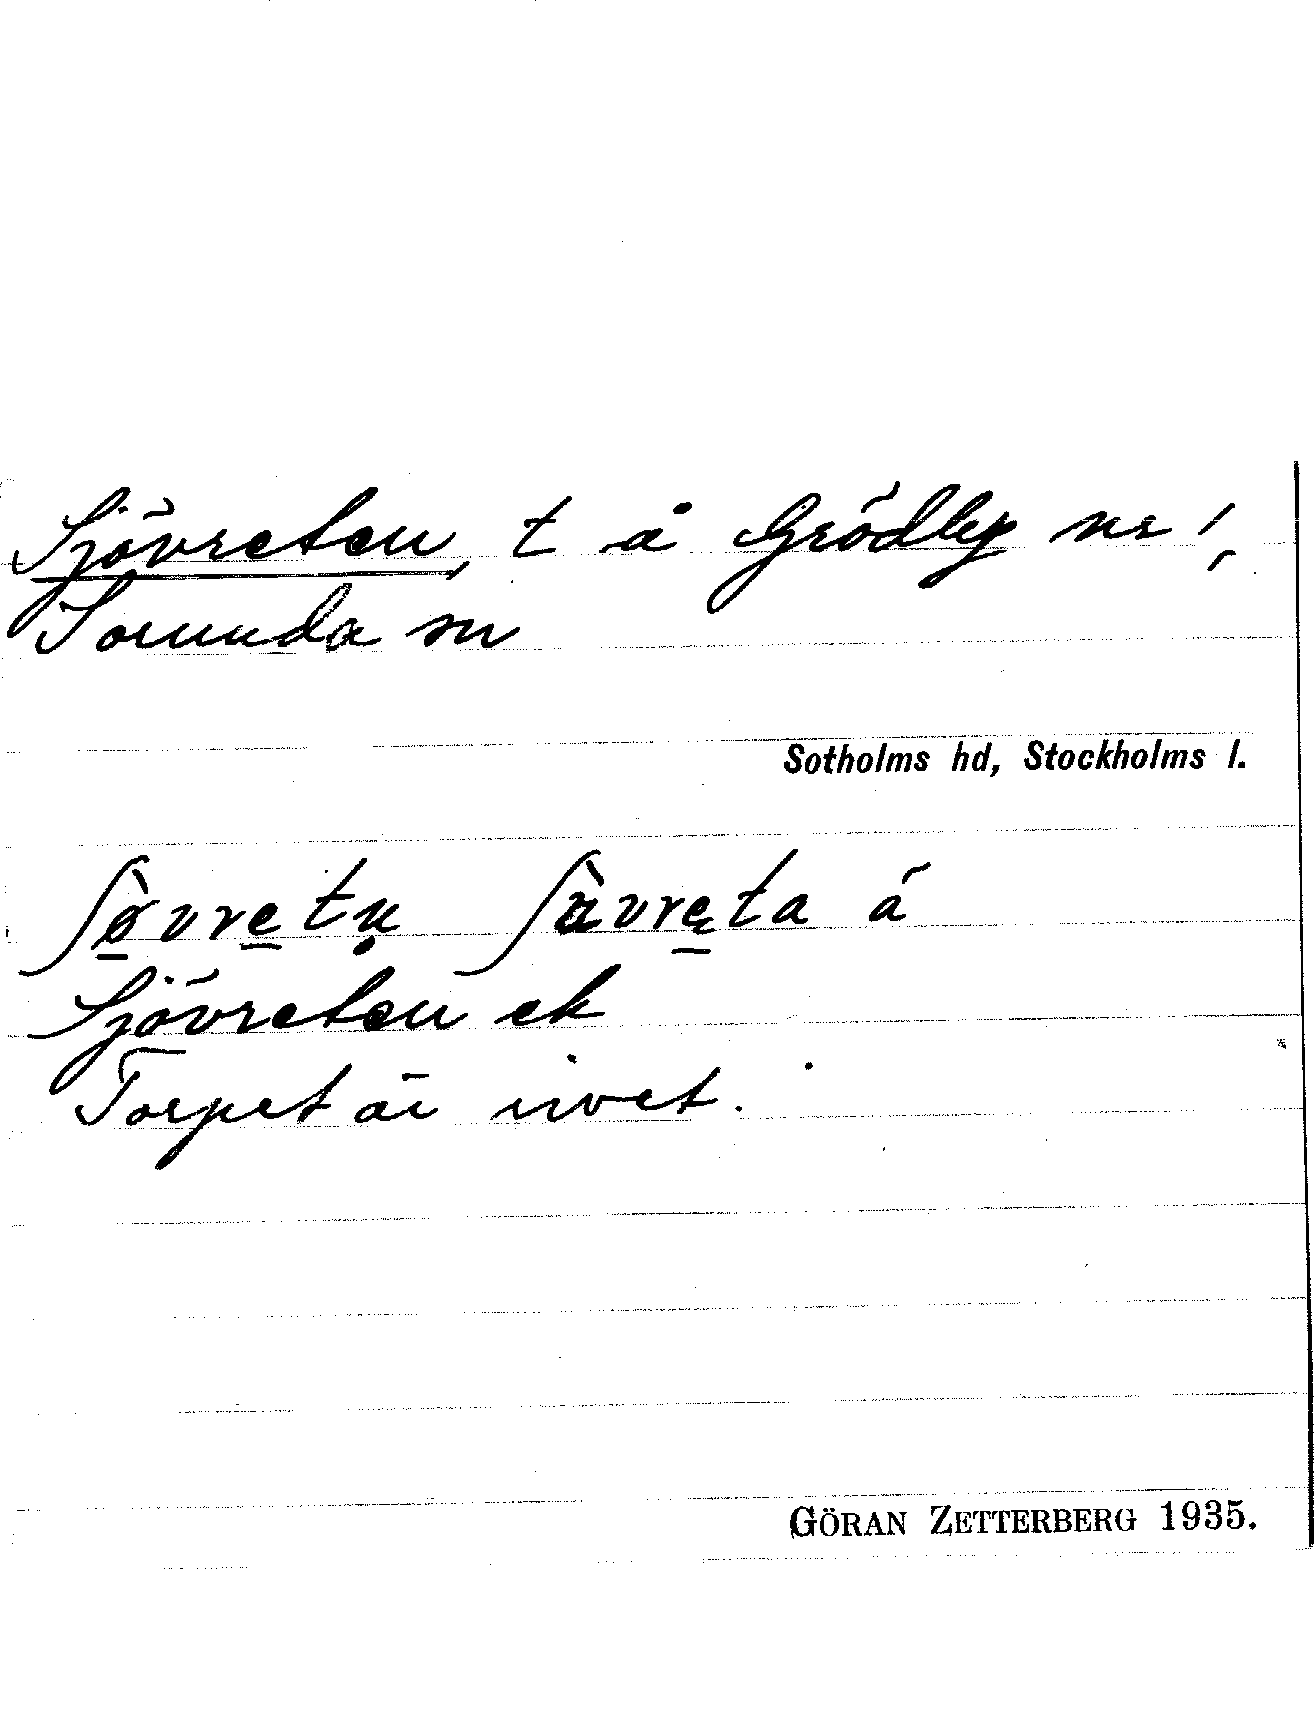 Sjövreten, t å Grödby nr 1,
Sorunda sn
Sotholms hd, Stockholms l.
ʃø̀vretn̥ ʃòvreta á
Sjövreten ek
Torpet är rivet.
GÖRAN ZETTERBERG 1935.